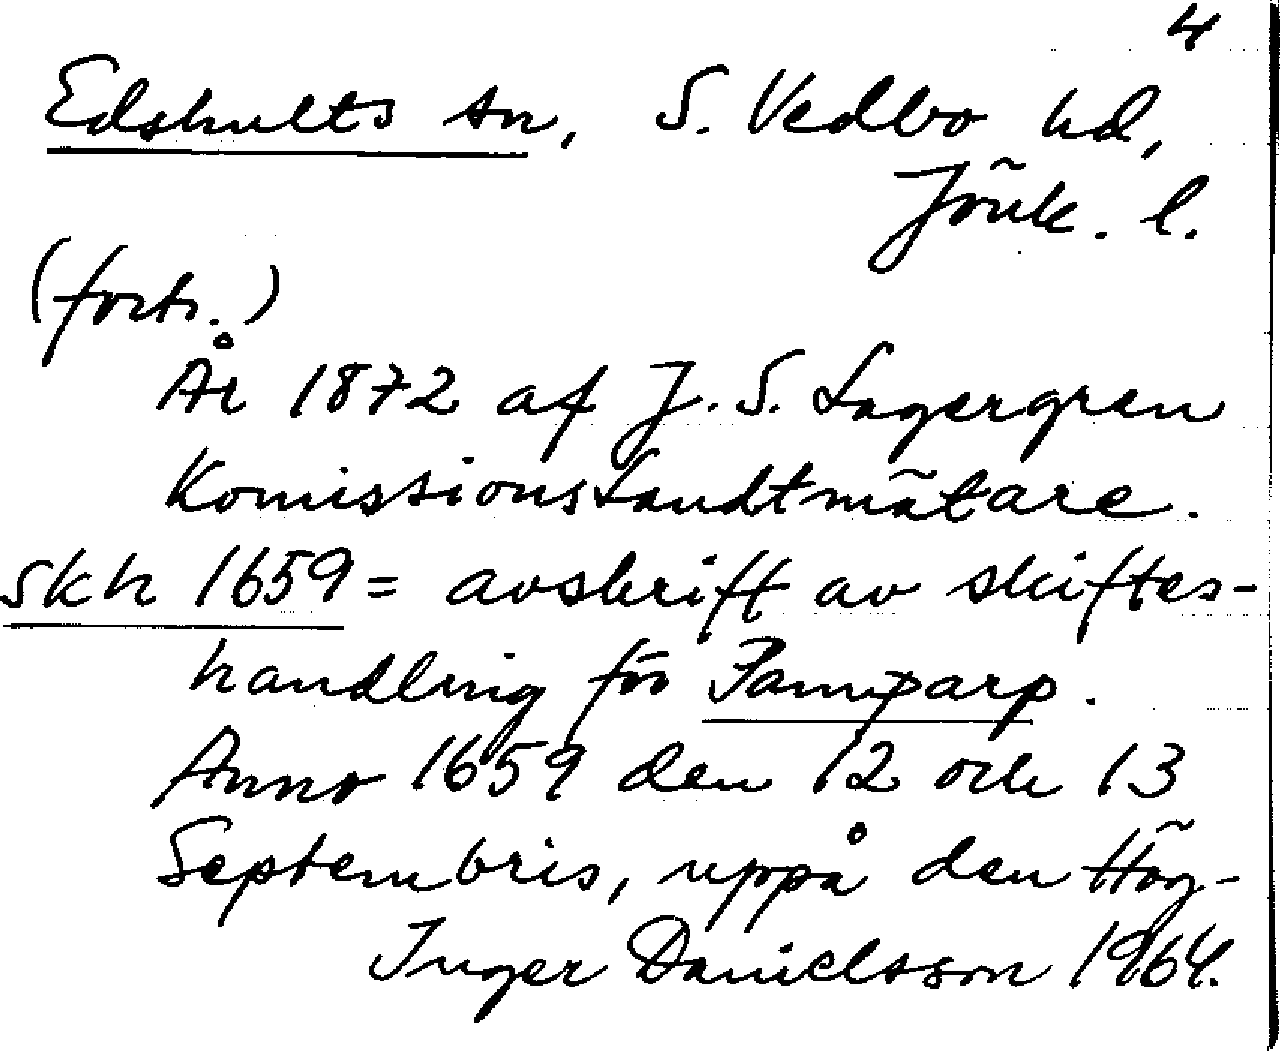 4
Edshults sn, S. Vedbo hd,
Jönk. l.
(forts.)
År 1872 af J. S. Lagergren
KomissionsLandtmätare.
Skh 1659 = avskrift av skiftes-
handling för Famparp.
Anno 1659 den 12 och 13
Septembris, uppå den Hög-
Inger Danielsson 1964.